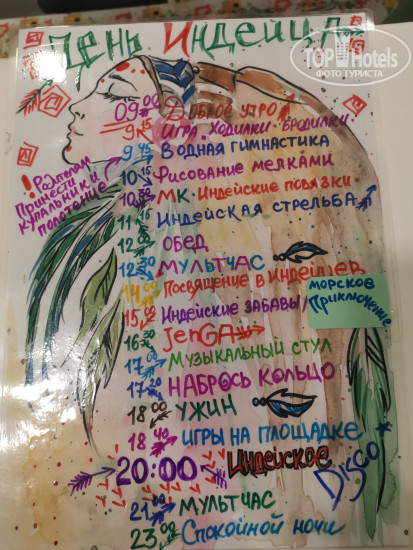 День Индейца
TOPHotels
ФОТО ТУРИСТА
09:00 Доброе утро!
9:15 Игра-Ходилки-Бродилки
9:45 Водная гимнастика
10:15 Рисование мелками
10:30 МК-Индейские повязки
11:15 Индейская стрельба
12:00 Обед
12:30 Мультчас
14:00 Посвящение в Индейцев
15:00 Индейские забавы/
Морское
приключение
16:30 JenGA
17:00 Музыкальный стул
17:20 Набрось кольцо
18:00 Ужин
18:40 Игры на площадке
20:00 Индейское Disco
21:00 Мультчас
23:00 Спокойной ночи
! Родителям
принести
купальник и
полотенце